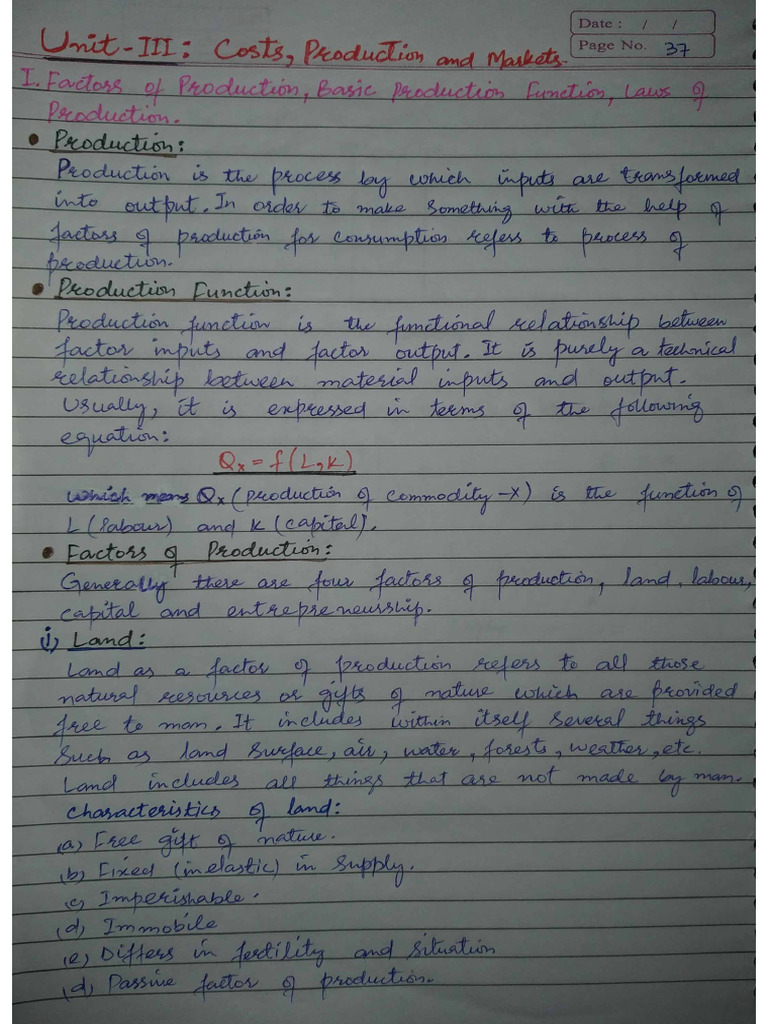 Date : / /
Page No. 37
Unit-III: Costs, Production and Markets.
I. Factors of Production, Basic Production Function, Laws of
Production.
• Production:
Production is the process by which inputs are transformed
into output. In order to make something with the help of
factors of production for consumption refers to process of
production.
• Production Function:
Production function is the functional relationship between
factor inputs and factor output. It is purely a technical
relationship between material inputs and output.
Usually, it is expressed in terms of the following
equation:
Qx = f(L, K)
which means Qx (production of commodity-x) is the function of
L (labour) and K (capital).
• Factors of Production:
Generally there are four factors of production, land, labour,
capital and entrepreneurship.
i) Land:
Land as a factor of production refers to all those
natural resources or gifts of nature which are provided
free to man. It includes within itself several things
such as land surface, air, water, forests, weather, etc.
Land includes all things that are not made by man.
Characteristics of land:
(a) Free gift of nature.
(b) Fixed (inelastic) in supply.
(c) Imperishable.
(d) Immobile
(e) Differs in fertility and situation
(d) Passive factor of production.